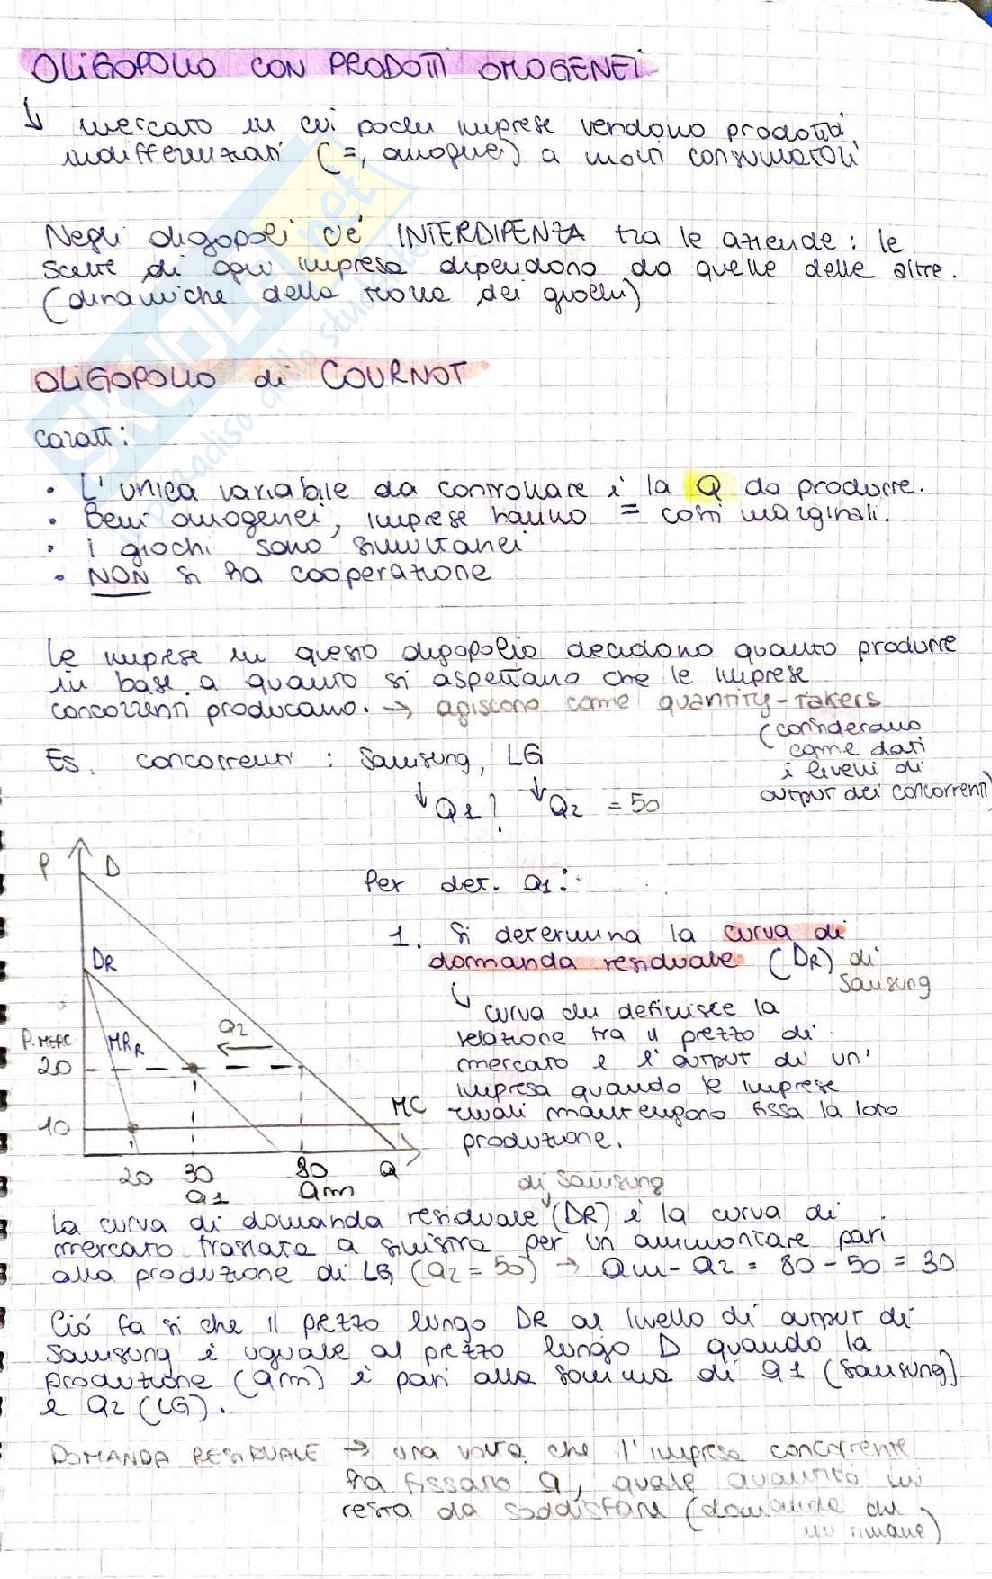 OLIGOPOLIO CON PRODOTTI OMOGENEI
↳ mercato in cui poche imprese vendono prodotti
indifferenziati (=, omogenei) a molti consumatori
Negli oligopoli c'è INTERDIPENZA tra le aziende: le
scelte di ogni impresa dipendono da quelle delle altre.
(dinamiche della teoria dei giochi)
OLIGOPOLIO di COURNOT
caratt:
• L'unica variabile da controllare è la Q da produrre.
• Beni omogenei, imprese hanno = costi marginali.
• i giochi sono simultanei
• NON si ha cooperazione
Le imprese in questo oligopolio decidono quanto produrre
in base a quanto si aspettano che le imprese
concorrenti producano. → agiscono come quantity-takers
(considerano
come dati
i livelli di
output dei concorrenti)
Es. concorrenti : Samsung, LG
↓ Q1? ↓ Q2 = 50
P D
DR
MRR
Q2
P.MERC
20
10
MC
20 30 80 Q
Q1 Qm
Per det. Q1:
1. Si determina la curva di
domanda residuale (DR) di
Samsung
↳ curva che definisce la
relazione tra il prezzo di
mercato e l'output di un'
impresa quando le imprese
rivali mantengono fissa la loro
produzione.
di Samsung
La curva di domanda residuale (DR) è la curva di
mercato traslata a sinistra per un ammontare pari
alla produzione di LG (Q2 = 50) → Qm - Q2 = 80 - 50 = 30
Ciò fa sì che il prezzo lungo DR al livello di output di
Samsung è uguale al prezzo lungo D quando la
produzione (Qm) è pari alla somma di Q1 (Samsung)
e Q2 (LG).
DOMANDA RESIDUALE → una volta che l'impresa concorrente
ha fissato Q, quale quantità mi
resta da soddisfare (domanda che
mi rimane)